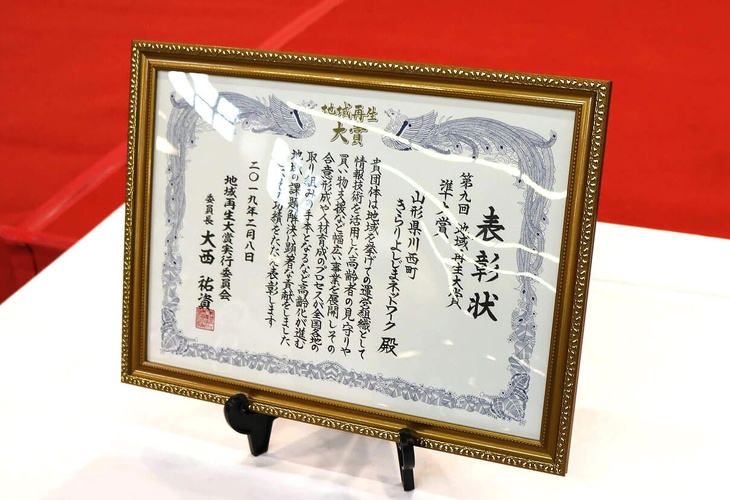 地域再生
大賞
表彰状
第九回 地域再生大賞
準大賞
山形県川西町
きらりよしじまネットワーク 殿
貴団体は地域を挙げての運営組織として
情報技術を活用した高齢者の見守りや
買い物支援など幅広い事業を展開しその
合意形成や人材育成のプロセスが全国各地の
取り組みの手本となるなど高齢化が進む
地域の課題解決に顕著な貢献をしました
功績をたたえ表彰します
二〇一九年二月八日
地域再生大賞実行委員会
委員長 大西 祐資